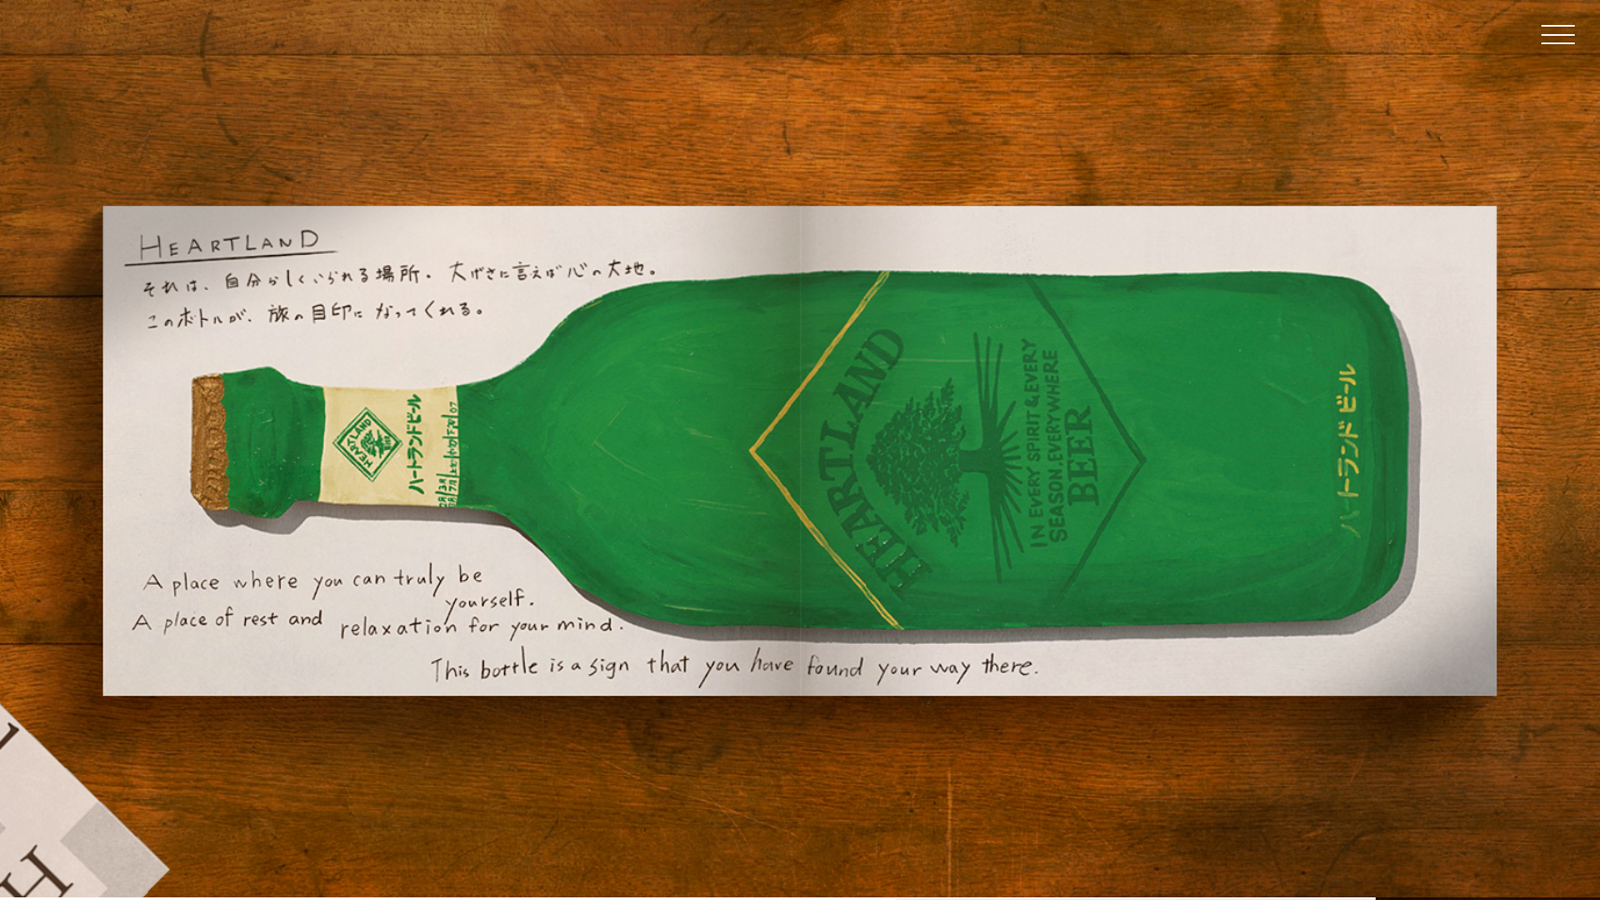 HEARTLAND
それは、自分らしくいられる場所。大げさに言えば心の大地。
このボトルが、旅の目印になってくれる。
HEARTLAND
ハートランドビール
HEARTLAND
IN EVERY SPIRIT & EVERY
SEASON, EVERYWHERE
BEER
ハートランドビール
A place where you can truly be
yourself.
A place of rest and relaxation for your mind.
This bottle is a sign that you have found your way there.
H